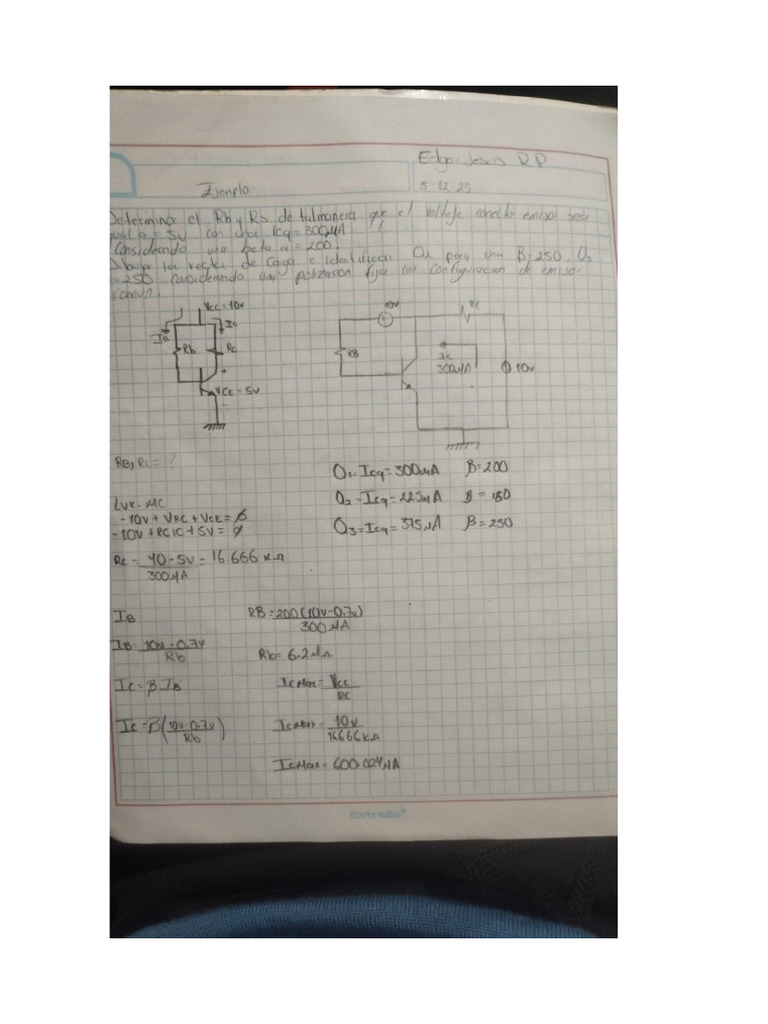 Edgar Jesus R P
Ejemplo
5-12-25
Determinar el Rb y Rc de tal manera que el voltaje colector emisor sea
igual a = 5v con una Icq = 300µA.
Considerando una beta a = 200.
Dibujar la recta de carga e identificar O2 para una B=250. O3
= 250 considerando una polizacion fija con configuracion de emisor
comun.
Vcc = 10v
IB
Ic
Rb
Rc
+
VCE = 5v
-
10v
Rc
RB
Ic
300µA
10v
RB, Rc = ?
O1 = Icq = 300µA B = 200
O2 = Icq = 225µA B = 150
O3 = Icq = 375µA B = 250
LVK - MC
-10v + VRC + VCE = 0
-10v + RCIC + 5V = 0
Rc = 10 - 5v = 16.666 KΩ
300µA
IB
IB = 10v - 0.7v
Rb
Ic = B IB
Ic = B (10v-0.7v)
Rb
RB = 200 (10v-0.7v)
300µA
Rb = 6.2MΩ
IcMax = Vcc
RC
IcMax = 10v
16666KΩ
IcMax = 600.024µA
Estrella